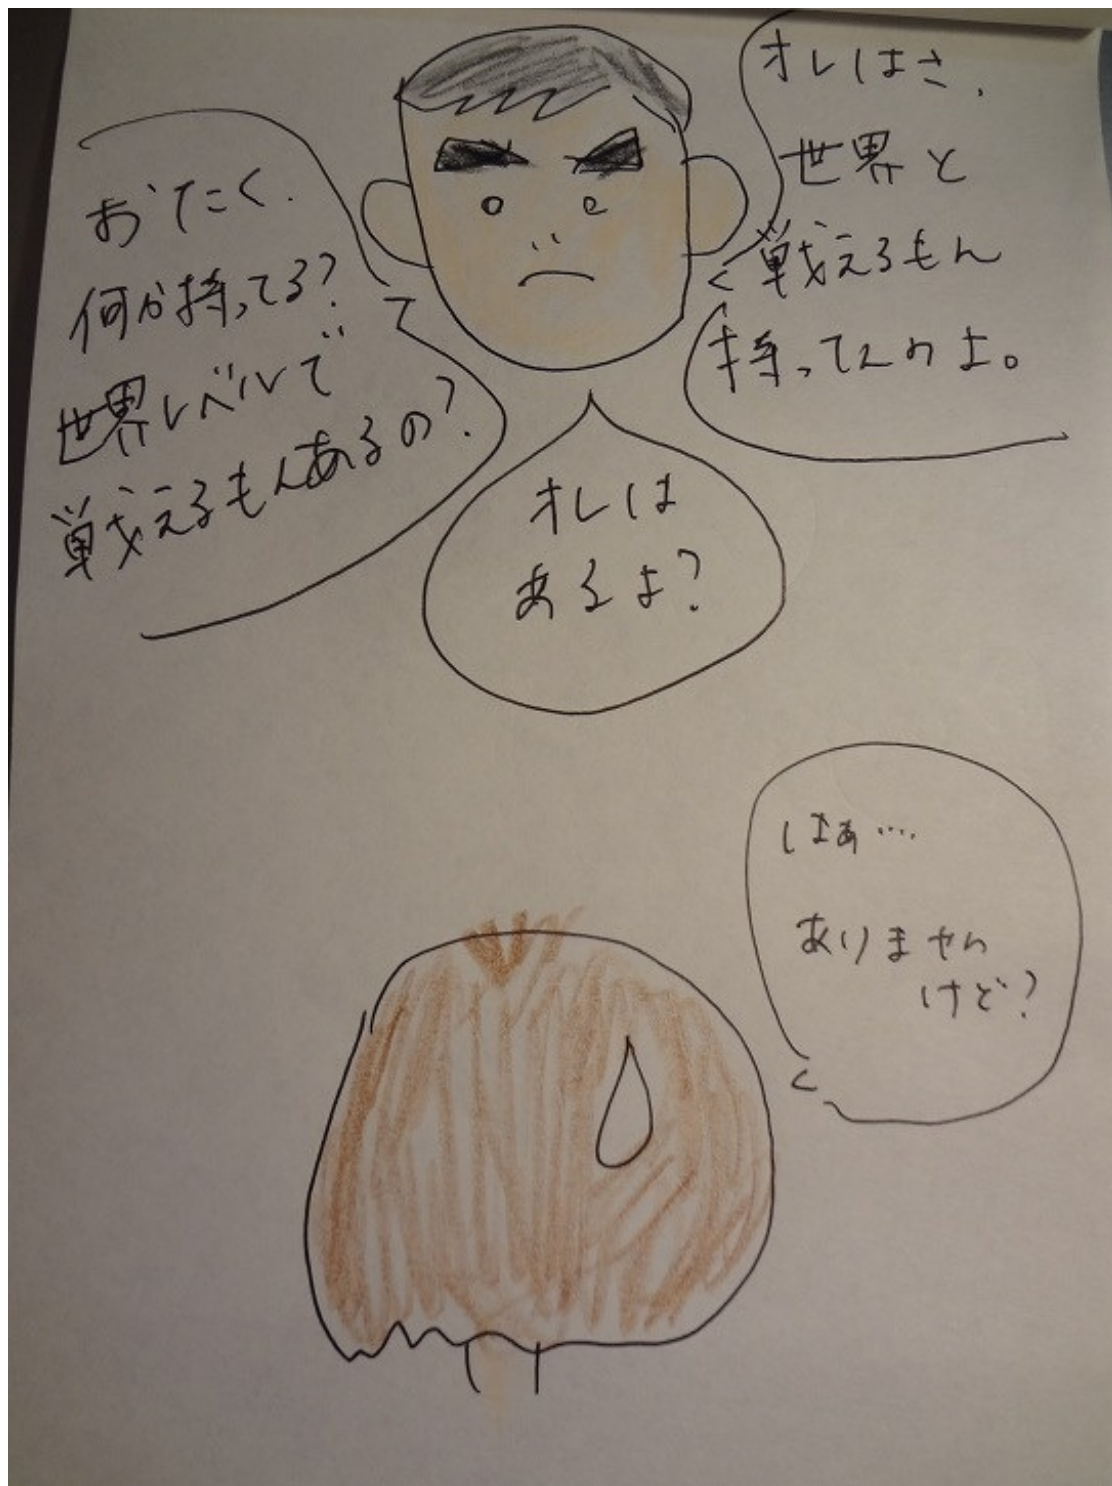 オレはさ、
世界と
戦えるもん
持ってんのよ。
おたく、
何か持ってる?
世界レベルで
戦えるもんあるの?
オレは
あるよ?
はぁ....
ありません
けど?